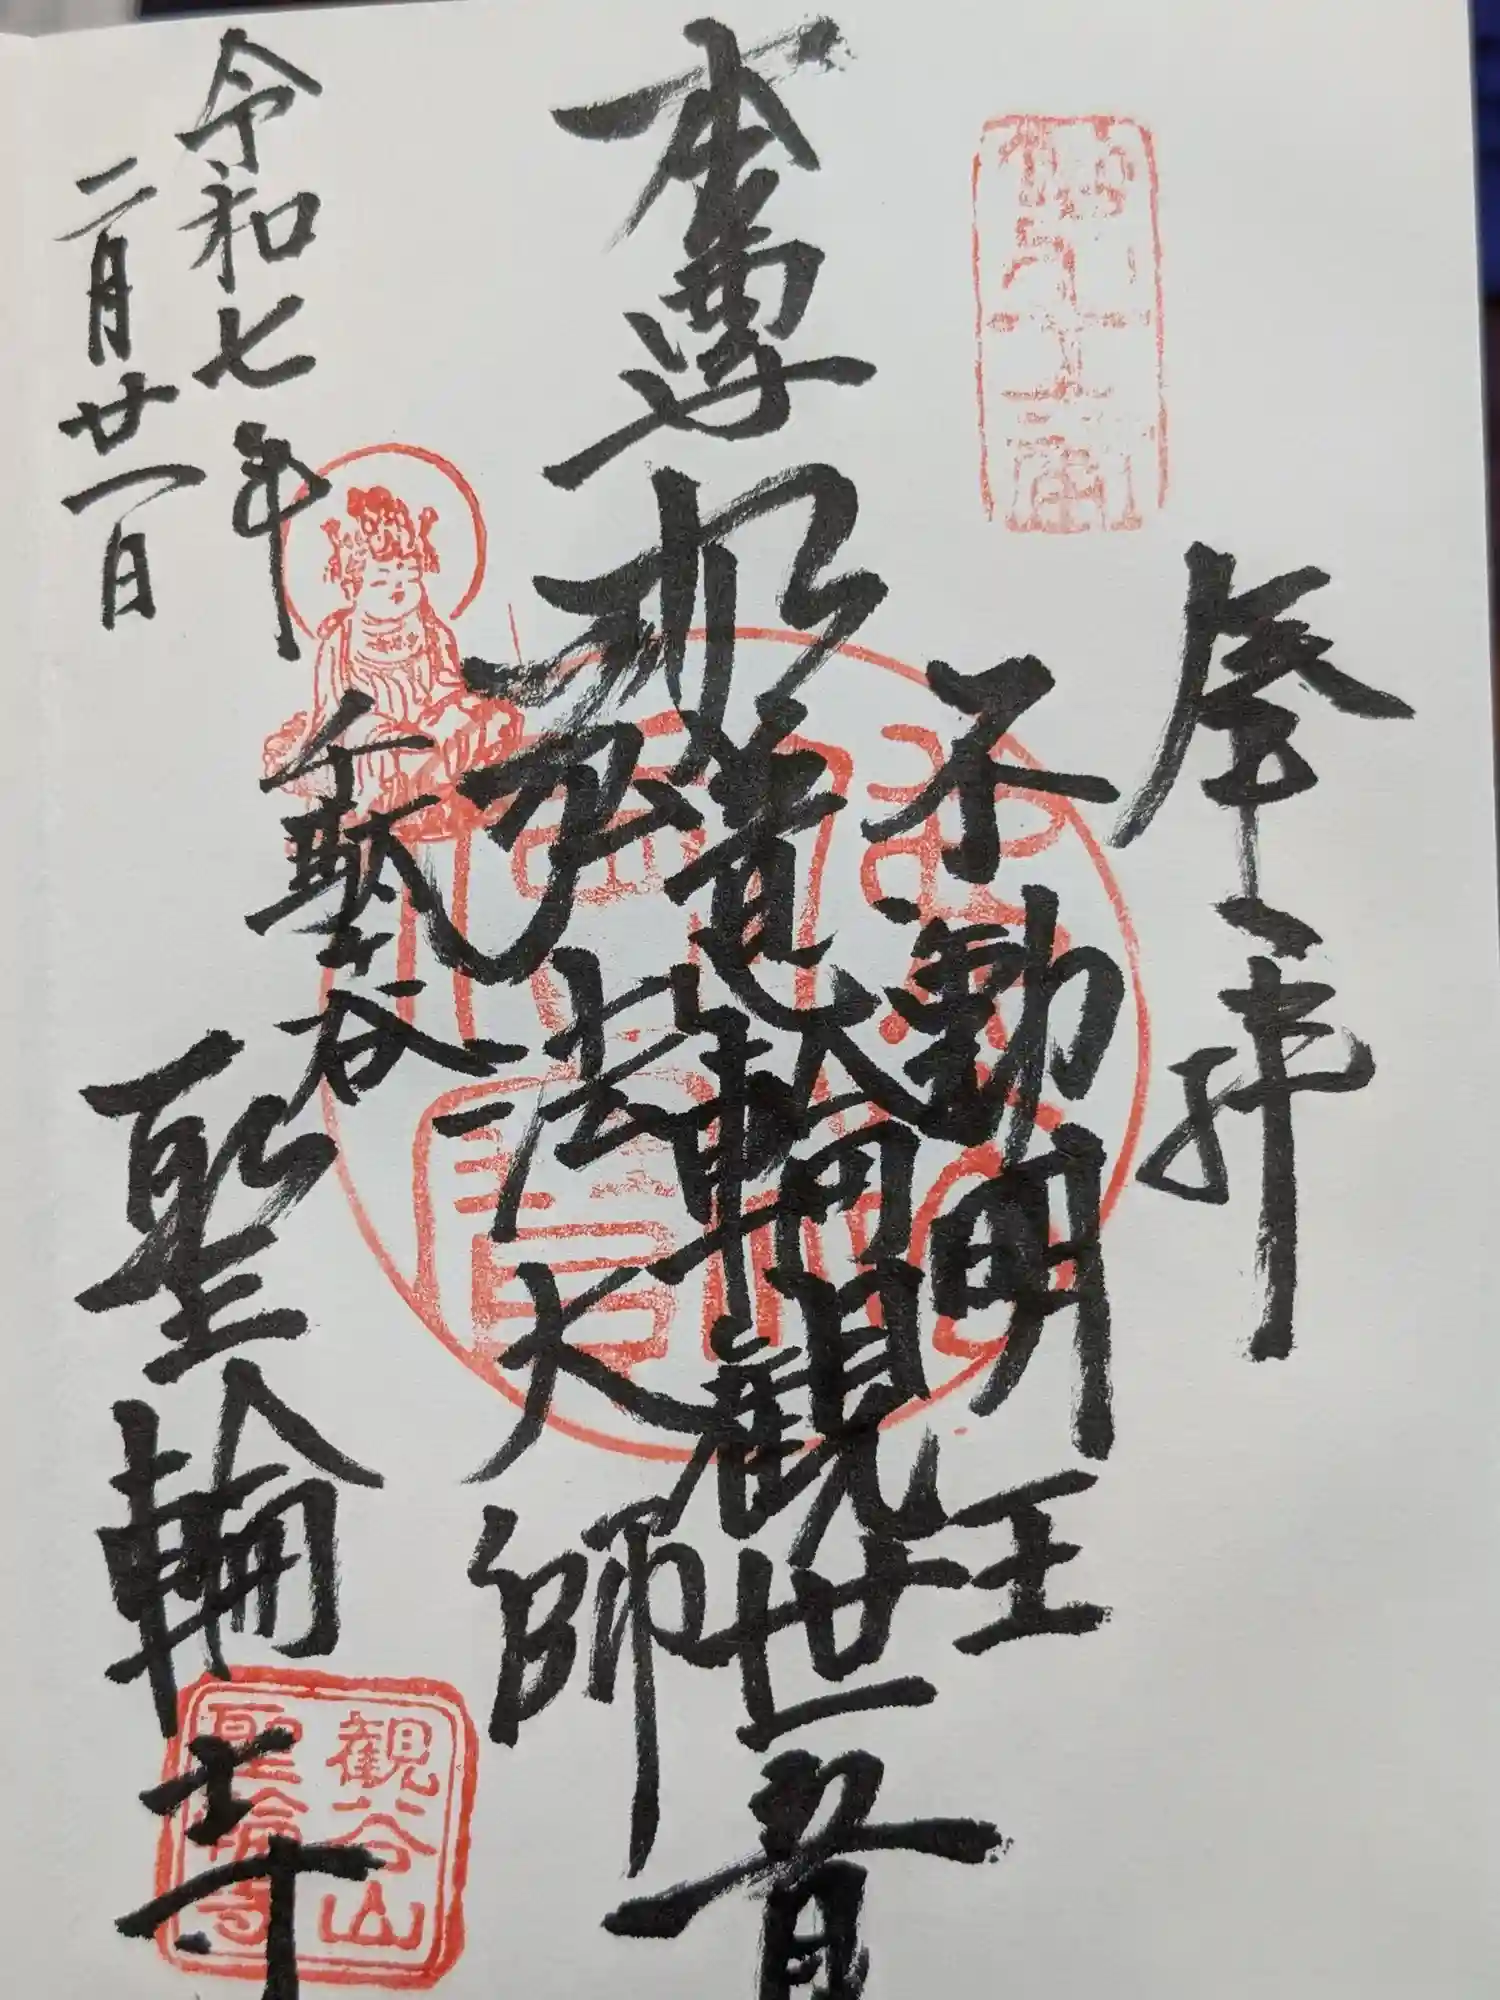 奉拝
不動明王
本尊 如意輪観世音
大
弘法大師
千駄ヶ谷
聖輪寺
令和七年
二月廿一日
観谷山
聖輪寺